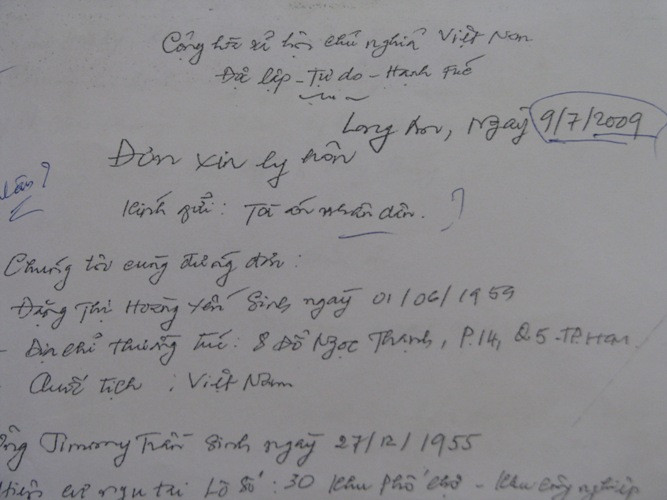 Cộng hòa xã hội chủ nghĩa Việt Nam
Độc lập - Tự do - Hạnh Phúc
Long An, Ngày 9/7/2009
Đơn xin ly hôn
Kính gửi: Tòa án nhân dân.
Chúng tôi cùng đứng đơn:
Đặng Thị Hoàng Yến Sinh ngày 01/06/1959
- Địa chỉ thường trú: 8 Đỗ Ngọc Thạnh, P.14, Q5-TP.HCM
Quốc tịch : Việt Nam
Ông Jimmy Trần Sinh ngày 27/12/1955
Hiện cư ngụ tại Lô Số: 30 Khu Phố chợ - Khu công nghiệp